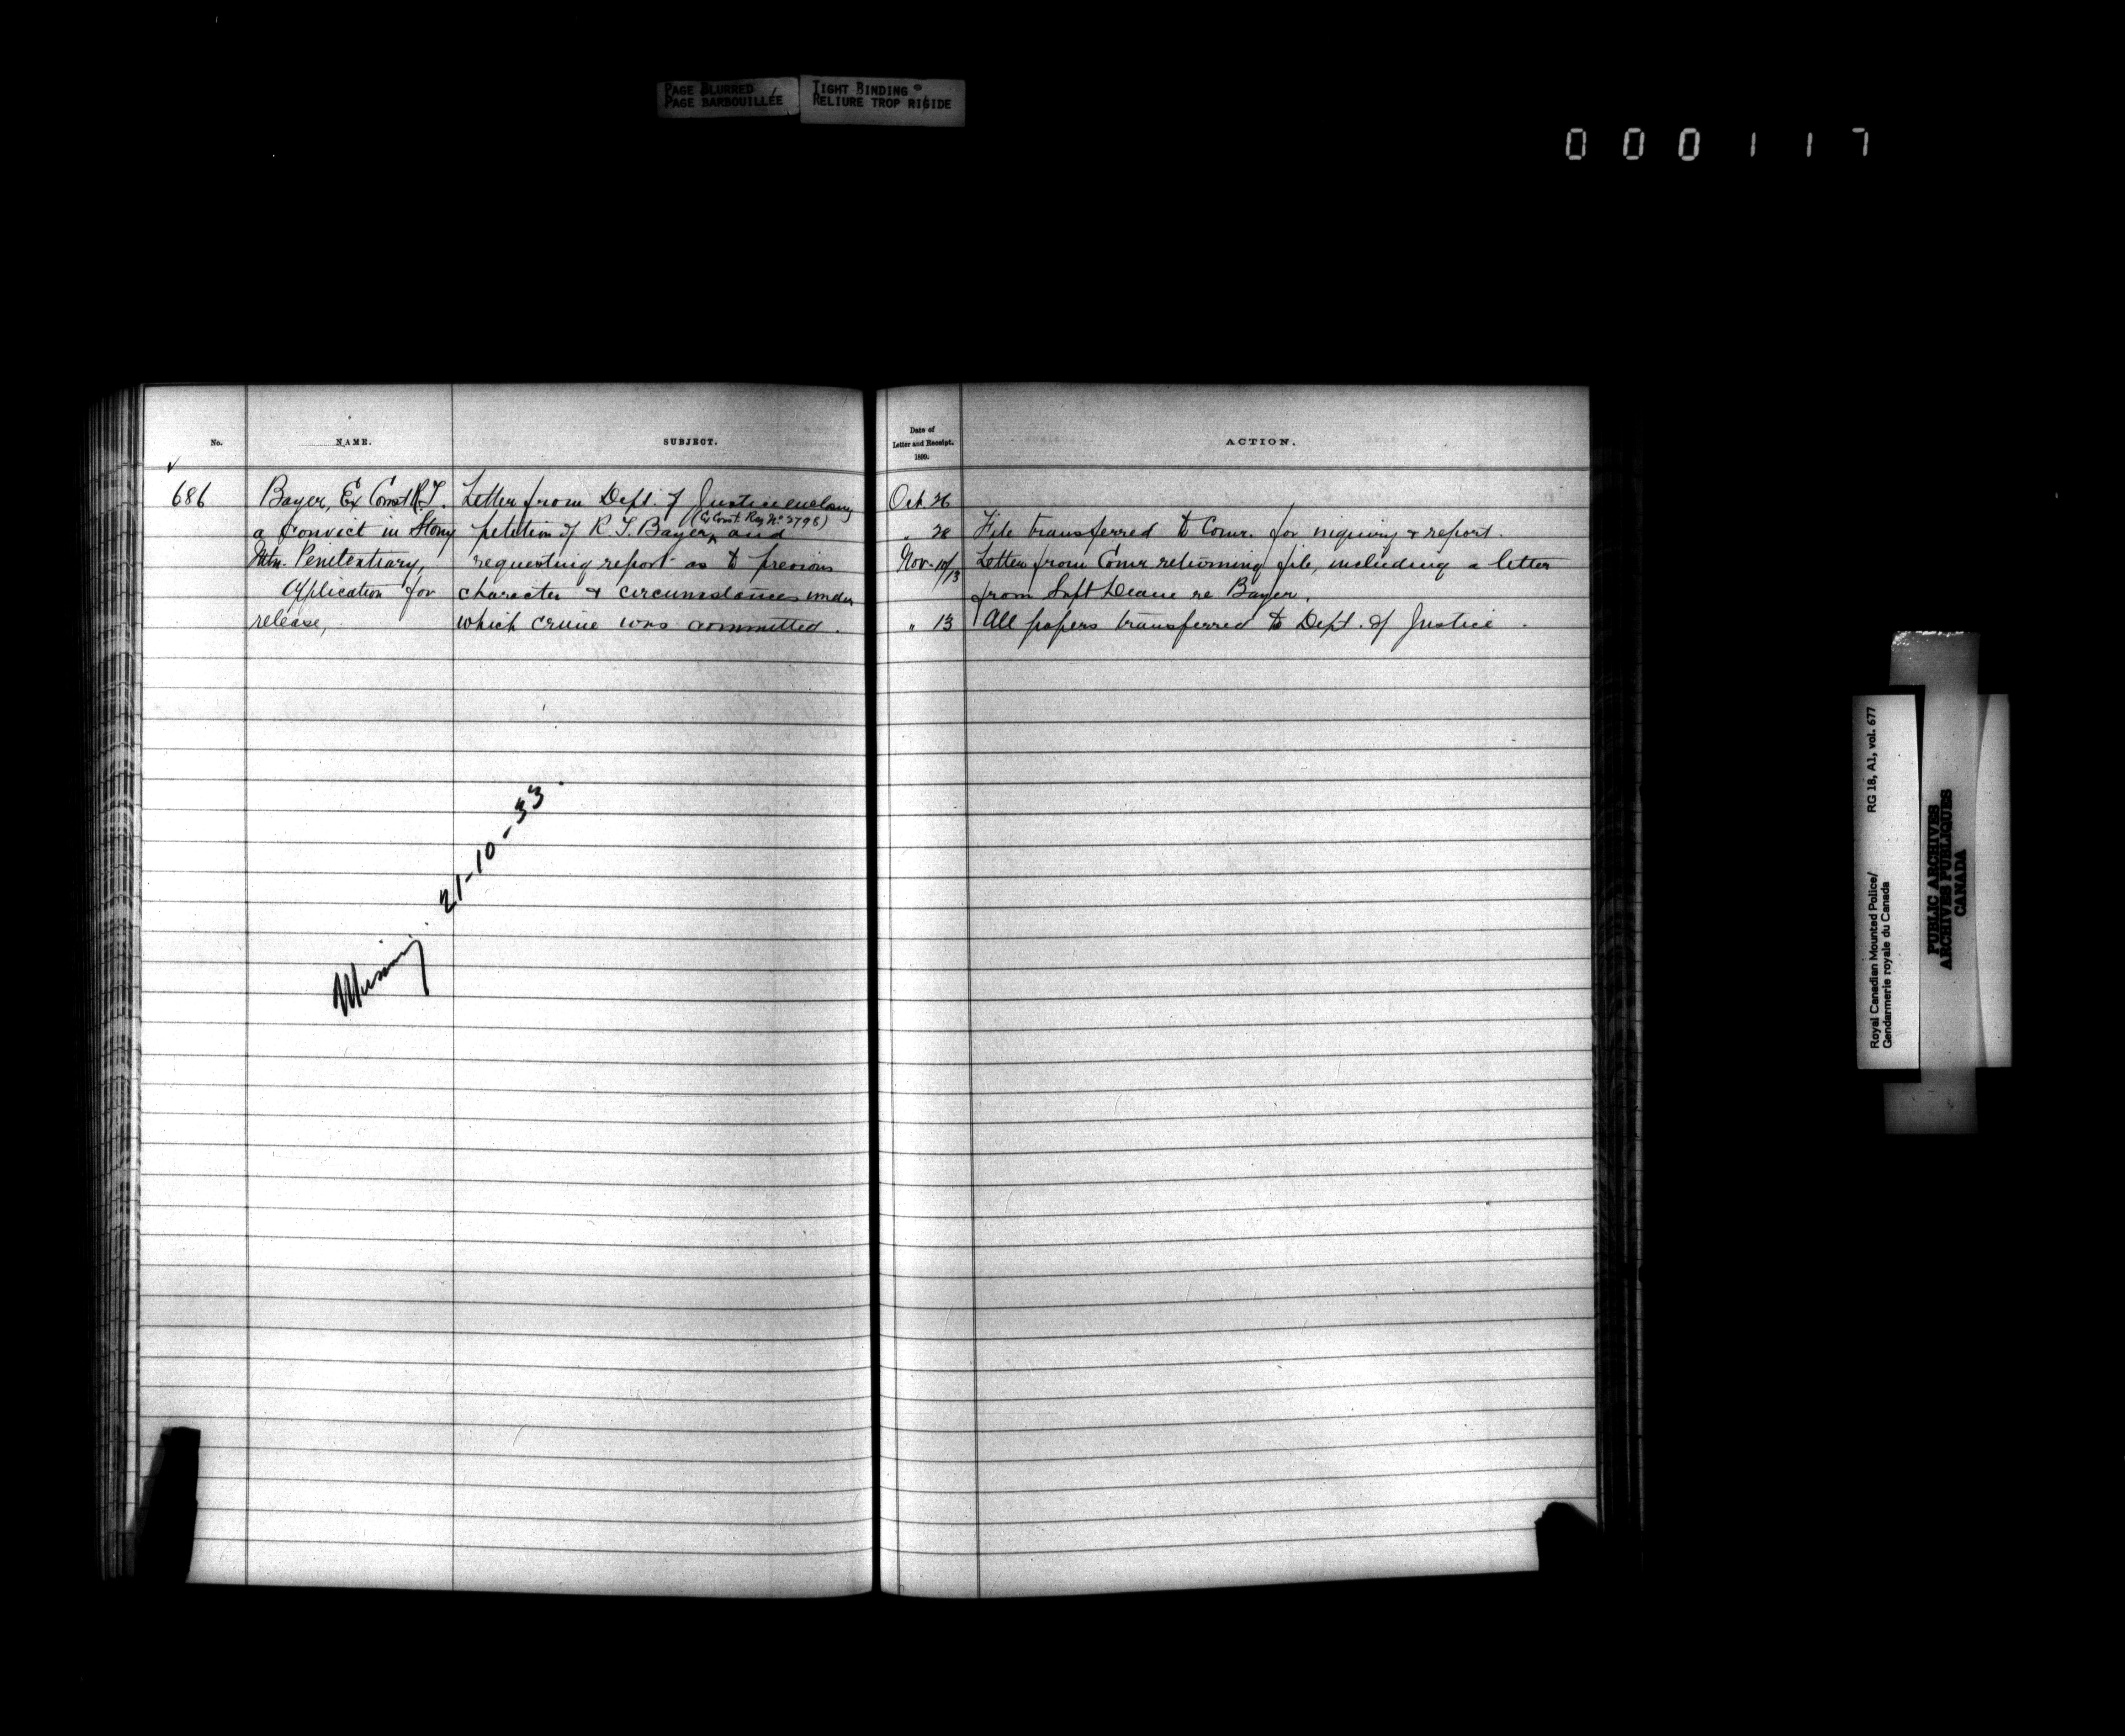 PAGE BLURRED
PAGE BARBOUILLÉE
TIGHT BINDING
RELIURE TROP RIGIDE
000117
No.
NAME.
SUBJECT.
686
Bayer, Ex Const R.T.
a convict in Stony
Mtn. Penitentiary,
Application for
release,
Letter from Dept. of Justice enclosing
petition of R. T. Bayer, (Ex Const. Reg No 2798) and
requesting report as to previous
character & circumstances under
which crime was committed.
Missing. 21-10-33.
Date of
Letter and Receipt.
1899.
ACTION.
Oct. 26
" 28 File transferred to Comr. for inquiry & report.
Nov. 10/13 Letter from Comr returning file, including a letter
from Supt Deane re Bayer.
" 13 All papers transferred to Dept. of Justice.
Royal Canadian Mounted Police/
Gendarmerie royale du Canada
RG 18, A1, vol. 677
PUBLIC ARCHIVES
ARCHIVES PUBLIQUES
CANADA